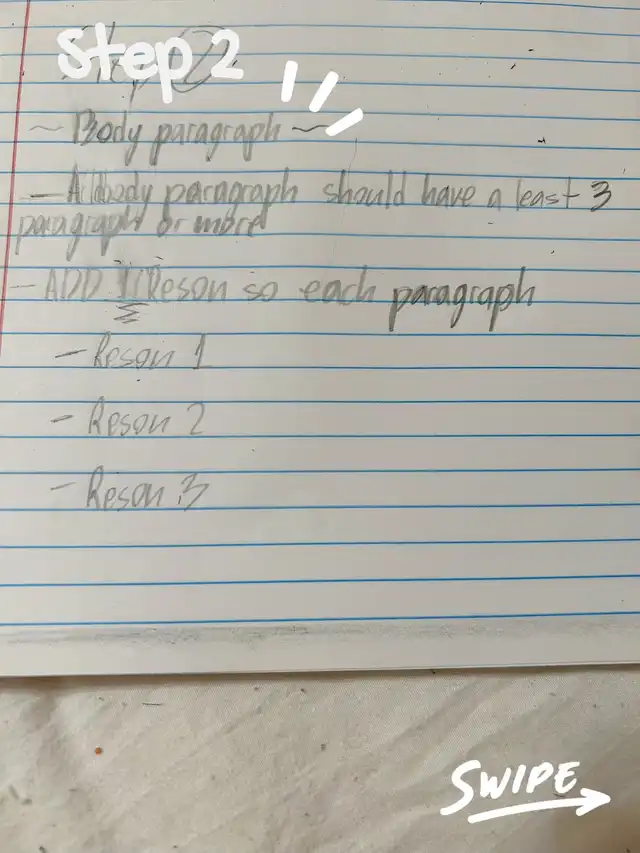 Step 2
~ Body paragraph ~
- A body paragraph should have a least 3
paragraph or more
- ADD 1 Reson so each paragraph
- Reson 1
- Reson 2
- Reson 3
SWIPE